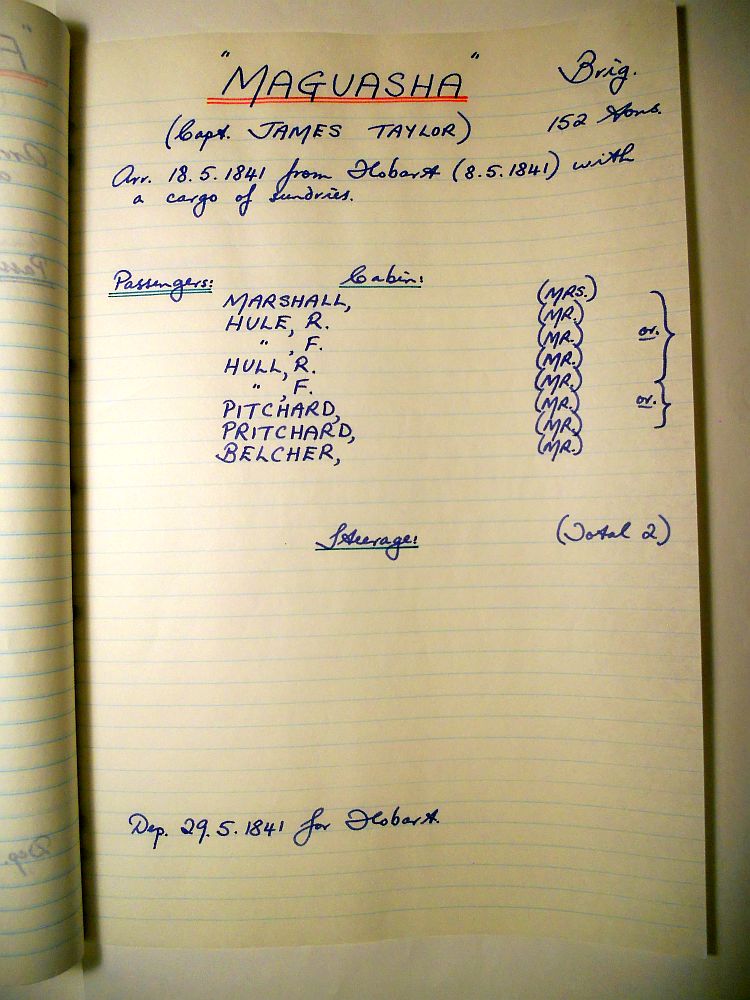 "MAGUASHA" Brig.
(Capt. JAMES TAYLOR) 152 tons.
Arr. 18.5.1841 from Hobart (8.5.1841) with
a cargo of sundries.
Passengers: Cabin:
MARSHALL, (MRS.)
HULE, R. (MR.)
" , F. (MR.) or.
HULL, R. (MR.)
" , F. (MR.)
PITCHARD, (MR.) or.
PRITCHARD, (MR.)
BELCHER, (MR.)
Steerage: (Total 2)
Dep. 29.5.1841 for Hobart.